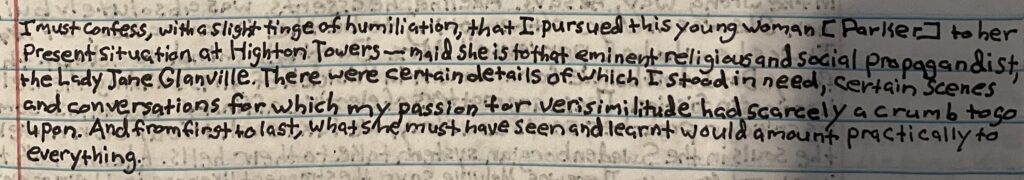 I must confess, with a slight tinge of humiliation, that I pursued this young woman [Parker] to her
Present situation at Highton Towers—maid she is to that eminent religious and social propagandist,
the Lady Jane Glanville. There were certain details of which I stood in need, certain scenes
and conversations for which my passion for verisimilitude had scarcely a crumb to go
upon. And from first to last, what she must have seen and learnt would amount practically to
everything.